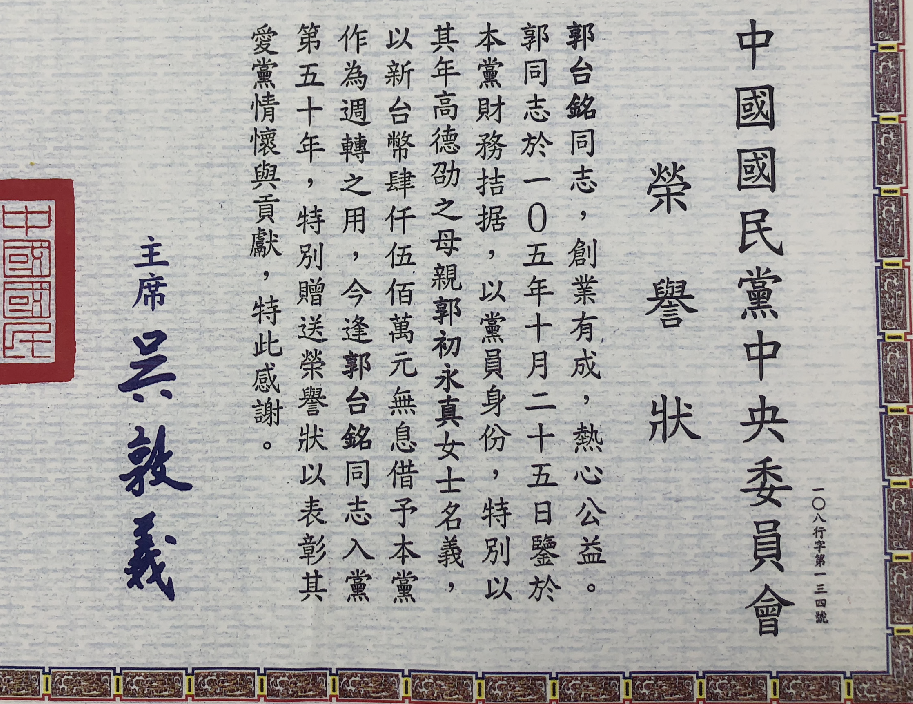 一〇八行字第一三四號
中國國民黨中央委員會
榮譽狀
郭台銘同志，創業有成，熱心公益。
郭同志於一0五年十月二十五日鑒於
本黨財務拮据，以黨員身份，特別以
其年高德劭之母親郭初永真女士名義，
以新台幣肆仟伍佰萬元無息借予本黨
作為週轉之用，今逢郭台銘同志入黨
第五十年，特別贈送榮譽狀以表彰其
愛黨情懷與貢獻，特此感謝。
主席 吳敦義
中國國民